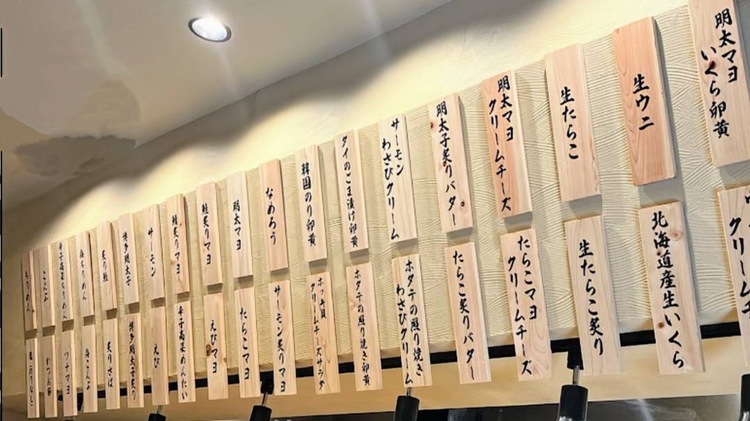 明太マヨ
いくら卵黄
生ウニ
生たらこ
明太マヨ
クリームチーズ
明太子炙りバター
サーモン
わさびクリーム
タイのごま漬け卵黄
韓国のり卵黄
なめろう
明太マヨ
鮭マヨ
鮭炙りマヨ
サーモン
博多明太子
炙り鮭
こんぶ
北海道産生いくら
生たらこ炙り
たらこマヨ
クリームチーズ
たらこ炙りバター
ホタテの照り焼き
わさびクリーム
ホタテの照り焼き卵黄
クリームチーズサラダ
サーモン炙りマヨ
たらこマヨ
えびマヨ
辛子高菜めんたい
えび
博多明太子炙り
炙りさば
ツナマヨ
かつお梅